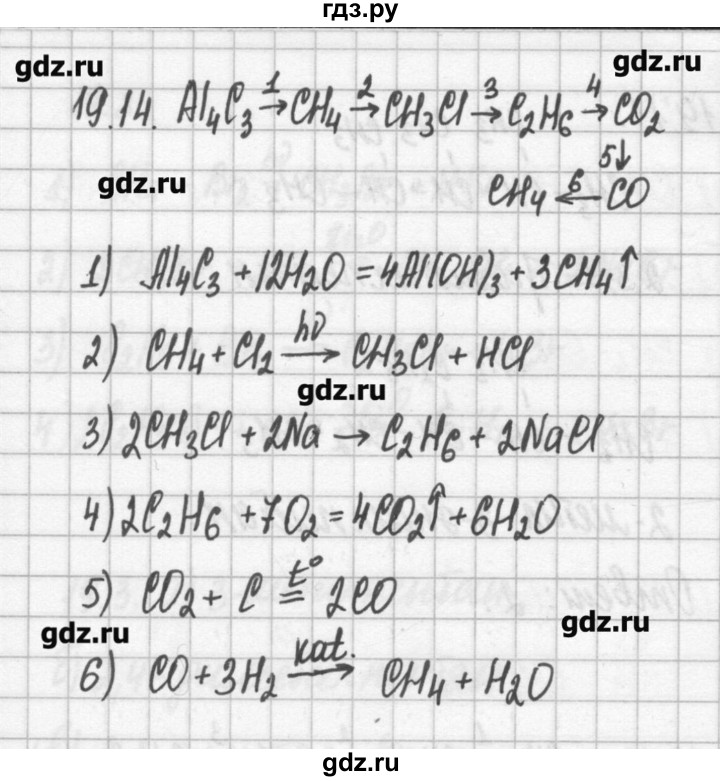 гдз.ру
gdz.ru
gdz.ru
19.14. Al4C3 →1 CH4 →2 CH3Cl →3 C2H6 →4 CO2
5↓
gdz.ru
CH4 ←6 CO
1) Al4C3 + 12H2O = 4Al(OH)3 + 3CH4↑
2) CH4 + Cl2 —hν→ CH3Cl + HCl
gdz.ru
3) 2CH3Cl + 2Na → C2H6 + 2NaCl
4) 2C2H6 + 7O2 = 4CO2↑ + 6H2O
5) CO2 + C =t°= 2CO
gdz.ru
gdz.ru
6) CO + 3H2 —kat.→ CH4 + H2O
gdz.ru